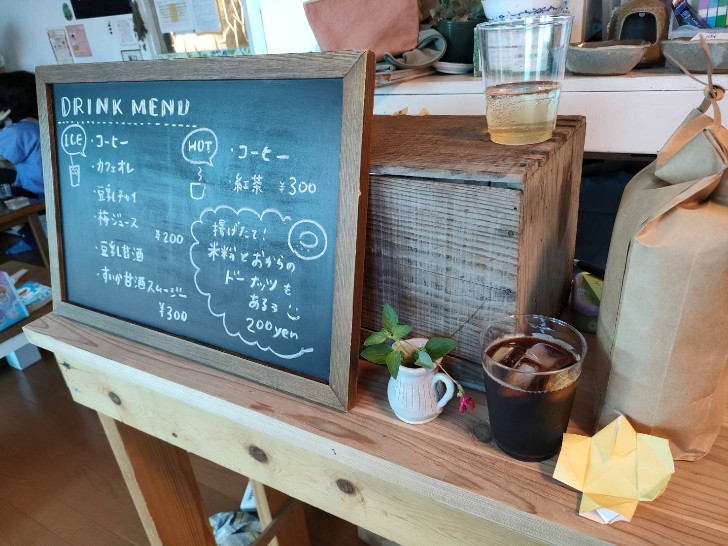 DRINK MENU
ICE
・コーヒー
・カフェオレ
・豆乳チャイ
・梅ジュース
¥200
・豆乳甘酒
・すいか甘酒スムージー
¥300
HOT
・コーヒー
紅茶 ¥300
揚げたて!
米粉とおからの
ドーナッツも
あるよ
200yen